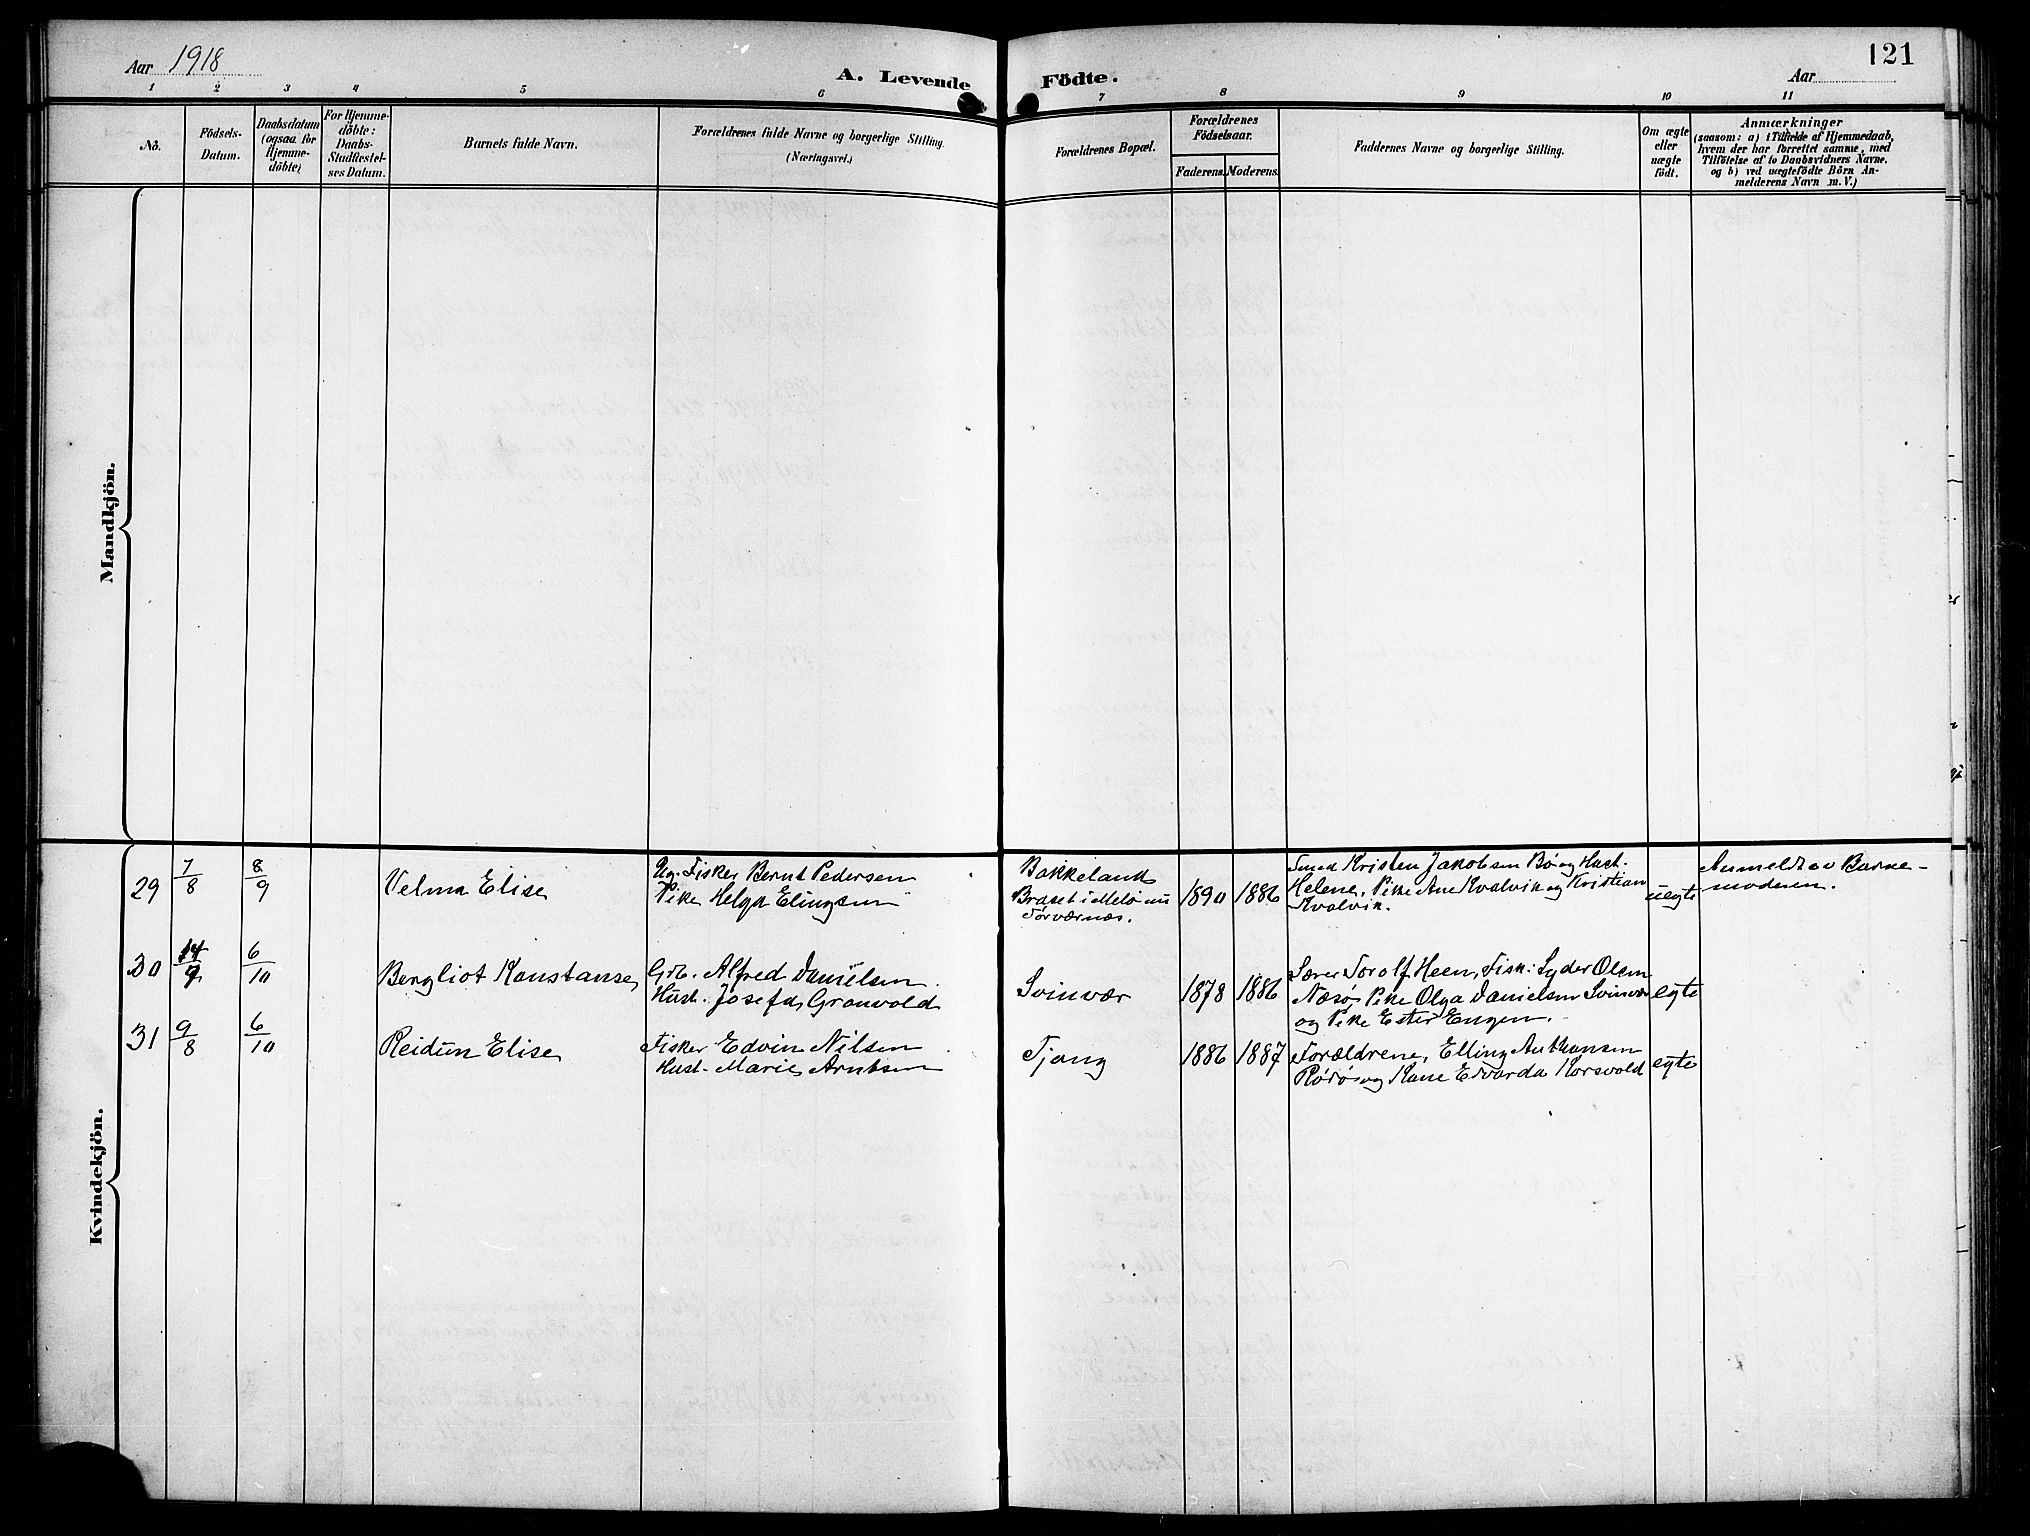 Aar 1918
A. Levende Födte.
121
Aar
1 2 3 4 5 6 7 8 9 10 11
No.
Födsels-
Datum.
Daabsdatum
(ogsaa for
Hjemme-
döbte)
For Hjemme-
döbte:
Daabs-
Stadfæstel-
ses Datum.
Barnets fulde Navn.
Forældrenes fulde Navne og borgerlige Stilling.
(Næringsvei.)
Forældrenes Bopæl.
Forældrenes
Födselsaar.
Faderens. Moderens.
Faddernes Navne og borgerlige Stilling.
Om ægte
eller
uægte
födt.
Anmærkninger
(saasom: a) i Tilfælde af Hjemmedaab,
hvem der har forrettet samme, med
Tilföielse af to Daabsvidners Navne,
og b) ved uægtefödte Börn An-
melderens Navn m. V.)
Mandkjön.
Kvindekjön.
29 7/8 8/9 Velma Elise
Ug. Fisker Bernt Pedersen
Pike Helga Elingsen
Bakkeland
Braset i Melö nu
Törværnes.
1890 1886
Smed Kristen Jakobsen Bö og Hust.
Helene, Pike Ane Kvalvik og Kristian
Kvalvik.
uegte
Anmeldt av Barne-
moderen.
30 14/9 6/10 Bergliot Konstanse
Grb. Alfred Danielsen
Hust. Josefa Gronvold
Svinvær 1878 1886
Lærer Torolf Heen, Fisk: Lyder Olsen
Næsö, Pike Olga Danielsen Svinvær
og Pike Ester Engen.
egte
31 9/8 6/10 Reidun Elise
Fisker Edvin Nilsen
Hust. Marie Arntsen
Tjong 1886 1887
Forældrene, Elling Anthonsen
Rödö og Kone Edvarda Korsvold
egte